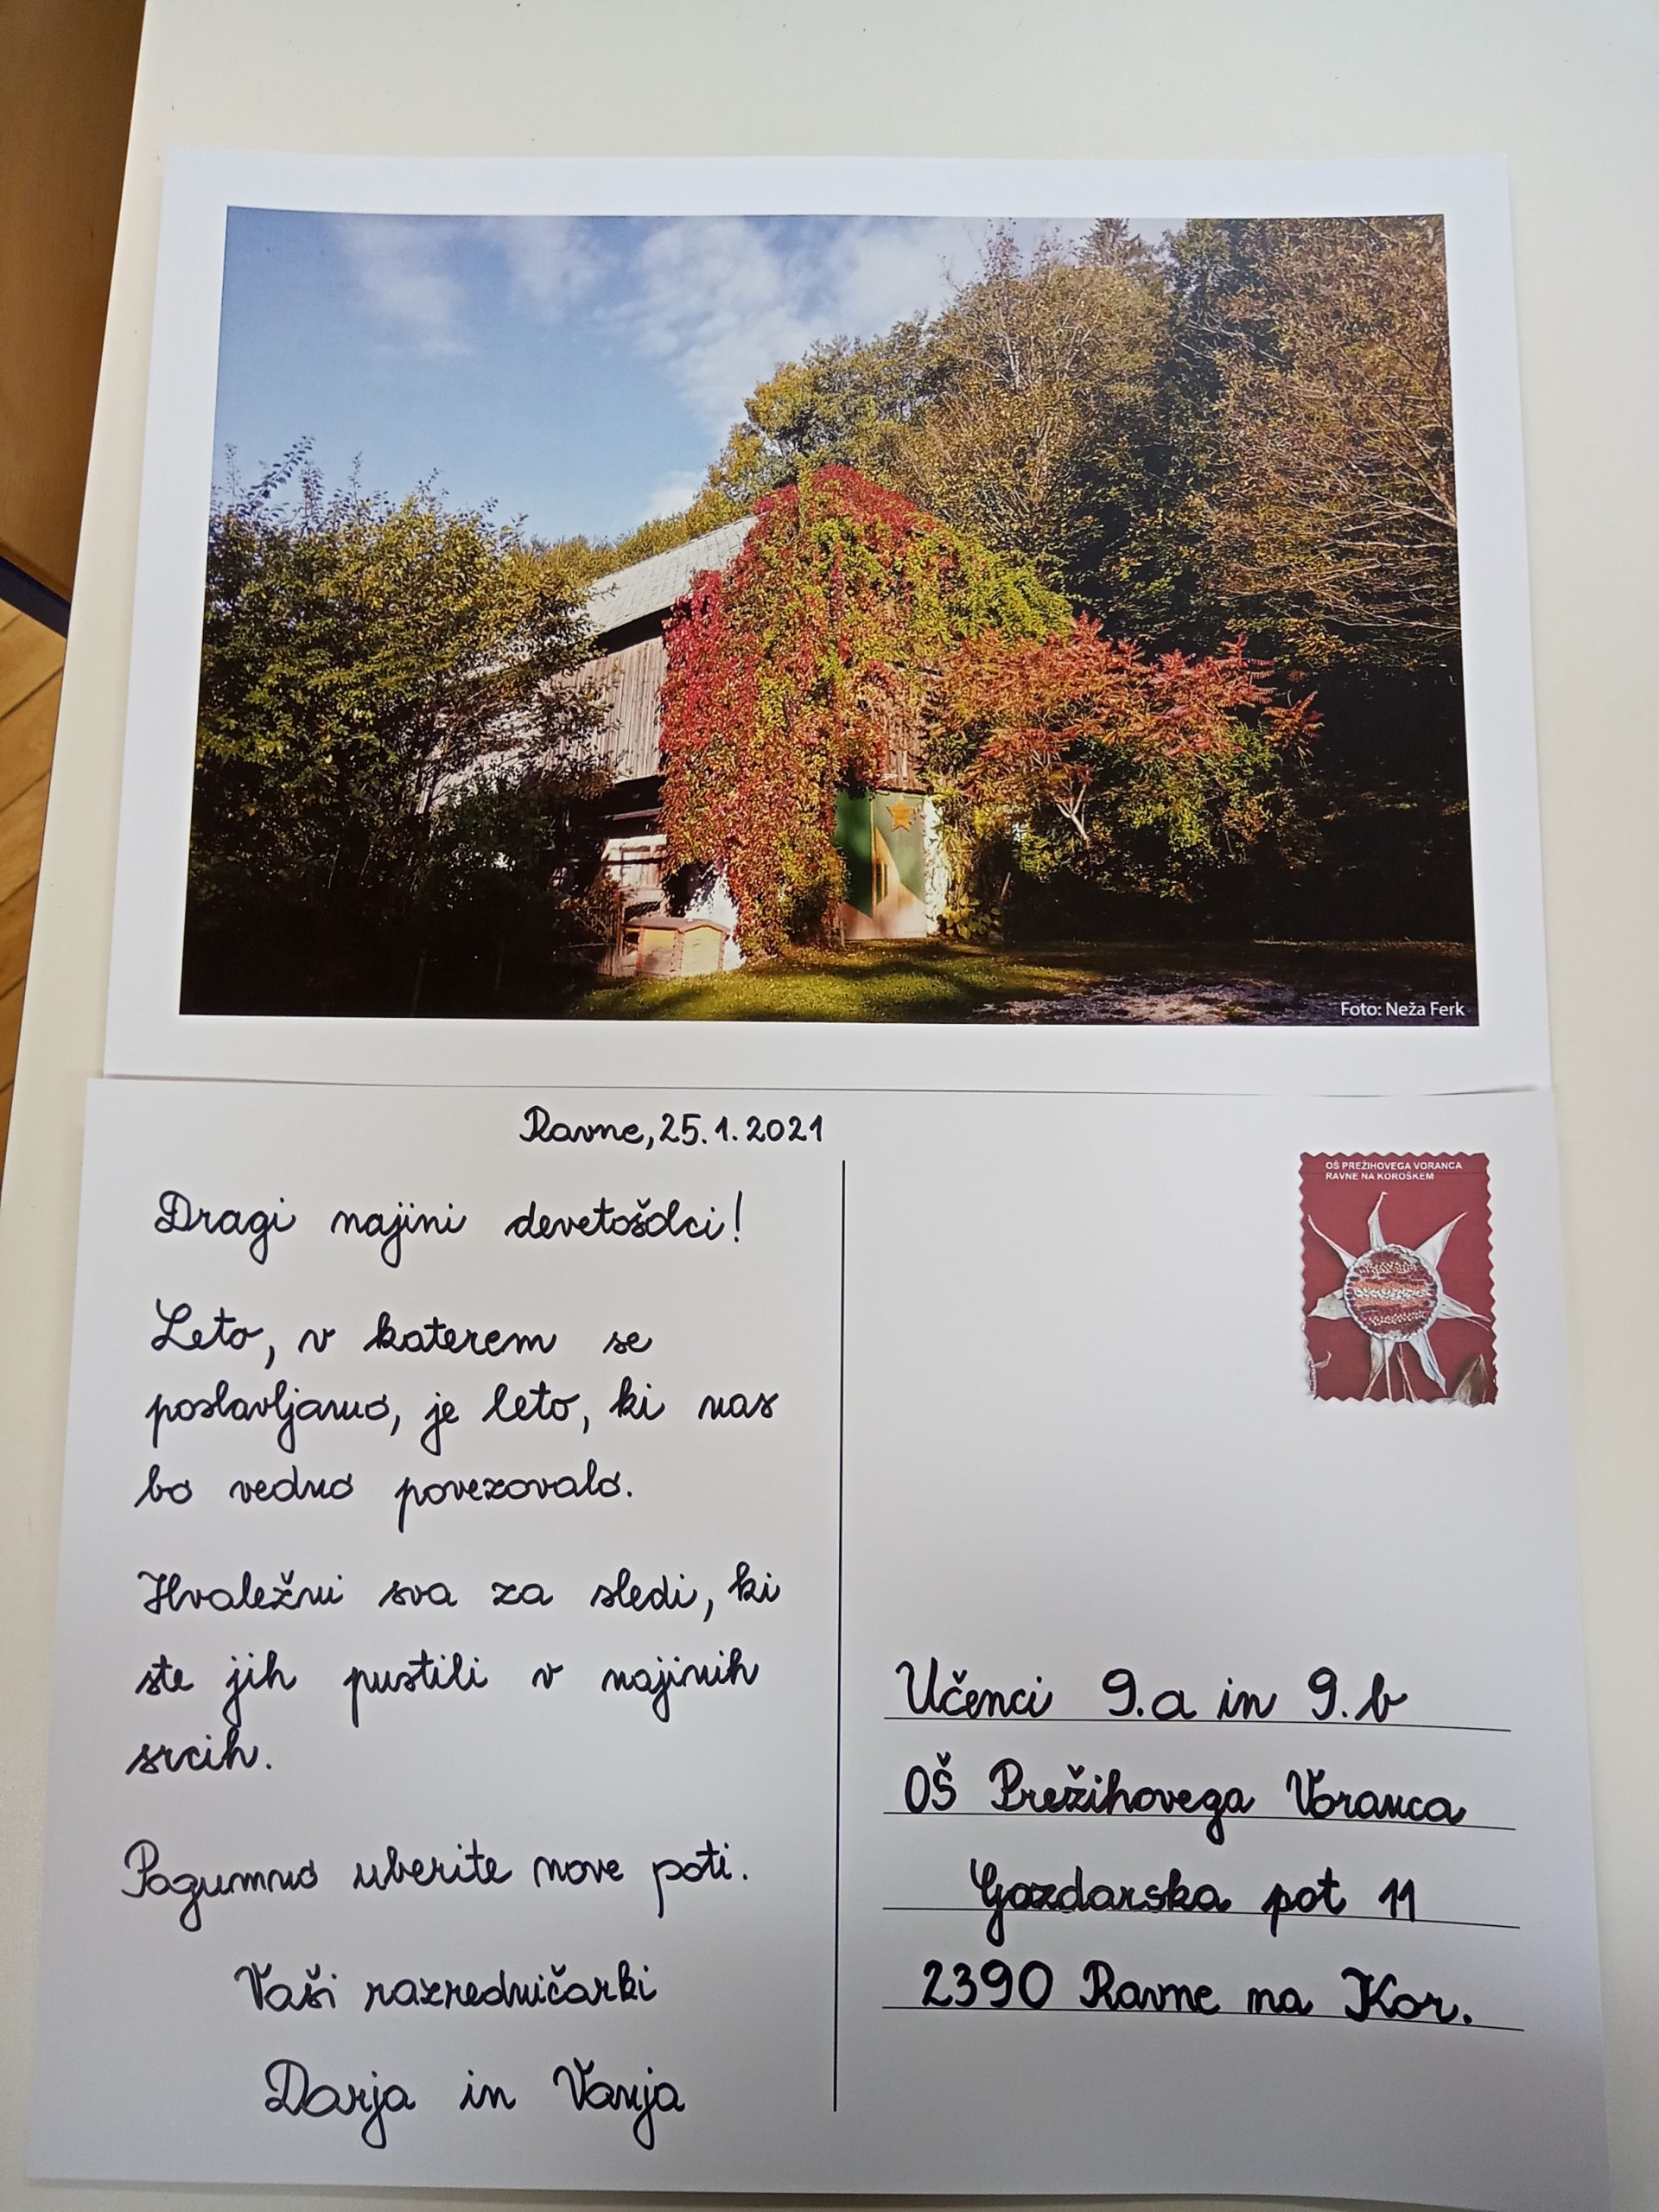 Foto: Neža Ferk
Ravne, 25. 1. 2021
Dragi najini devetošolci!
Leto, v katerem se
poslavljamo, je leto, ki nas
bo vedno povezovalo.
Hvaležni sva za sledi, ki
ste jih pustili v najinih
srcih.
Pogumno uberite nove poti.
Vaši razredničarki
Darja in Vanja
OŠ PREŽIHOVEGA VORANCA
RAVNE NA KOROŠKEM
Učenci 9.a in 9.b
OŠ Prežihovega Voranca
Gozdarska pot 11
2390 Ravne na Kor.